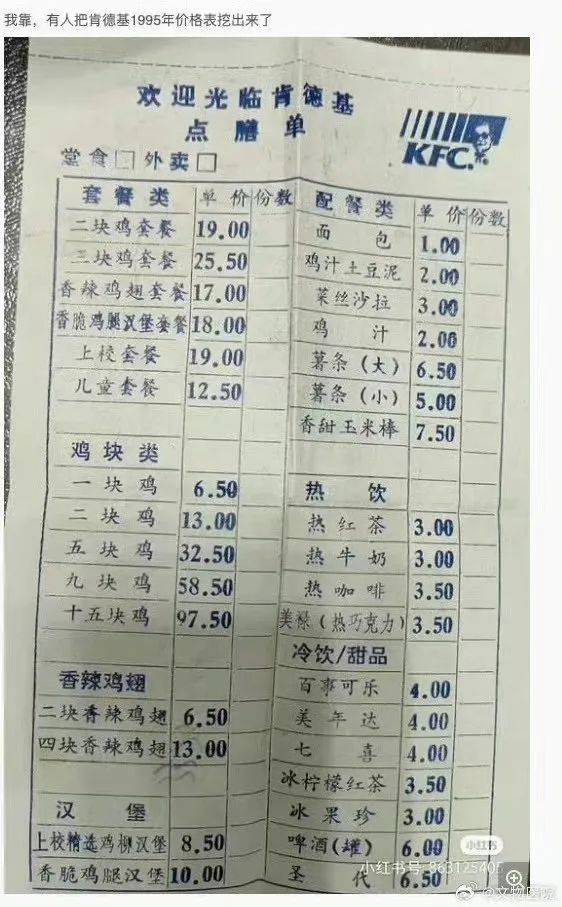 我靠，有人把肯德基1995年价格表挖出来了
欢迎光临肯德基
点膳单
KFC
堂食□ 外卖□
套餐类 单价 份数
二块鸡套餐 19.00
三块鸡套餐 25.50
香辣鸡翅套餐 17.00
香脆鸡腿汉堡套餐 18.00
上校套餐 19.00
儿童套餐 12.50
鸡块类
一块鸡 6.50
二块鸡 13.00
五块鸡 32.50
九块鸡 58.50
十五块鸡 97.50
香辣鸡翅
二块香辣鸡翅 6.50
四块香辣鸡翅 13.00
汉堡
上校精选鸡柳汉堡 8.50
香脆鸡腿汉堡 10.00
配餐类 单价 份数
面包 1.00
鸡汁土豆泥 2.00
菜丝沙拉 3.00
鸡汁 2.00
薯条（大） 6.50
薯条（小） 5.00
香甜玉米棒 7.50
热饮
热红茶 3.00
热牛奶 3.00
热咖啡 3.50
美禄（热巧克力） 3.50
冷饮/甜品
百事可乐 4.00
美年达 4.00
七喜 4.00
冰柠檬红茶 3.50
冰果珍 3.00
啤酒（罐） 6.00
圣代 6.50
小红书
小红书号 863125405
@文物医院